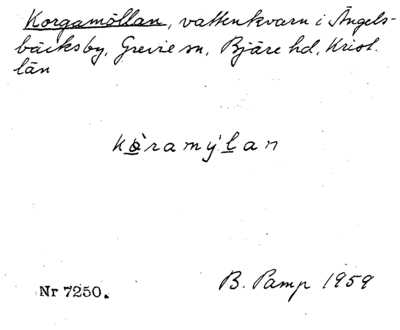 Korgamöllan, vattenkvarn i Ängels-
bäcksby, Grevie sn, Bjäre hd, Krist.
län
kòramýlan
Nr 7250.
B. Pamp 1959